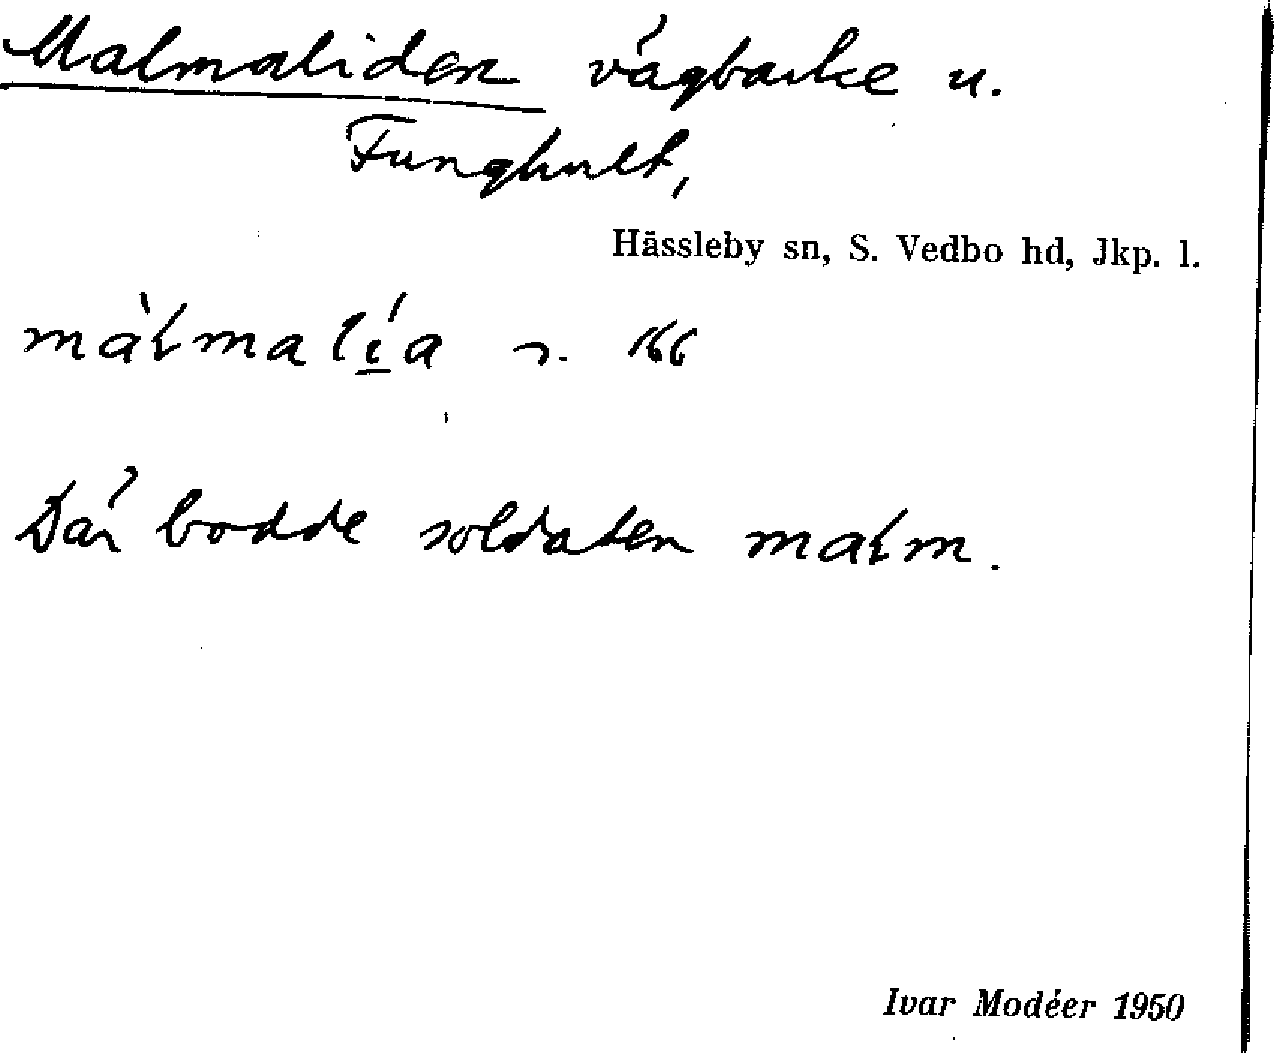 Malmaliden vägbacke u.
Funghult,
Hässleby sn, S. Vedbo hd, Jkp. l.
màłmalı̱́a n. 166
Där bodde soldaten małm.
Ivar Modéer 1950